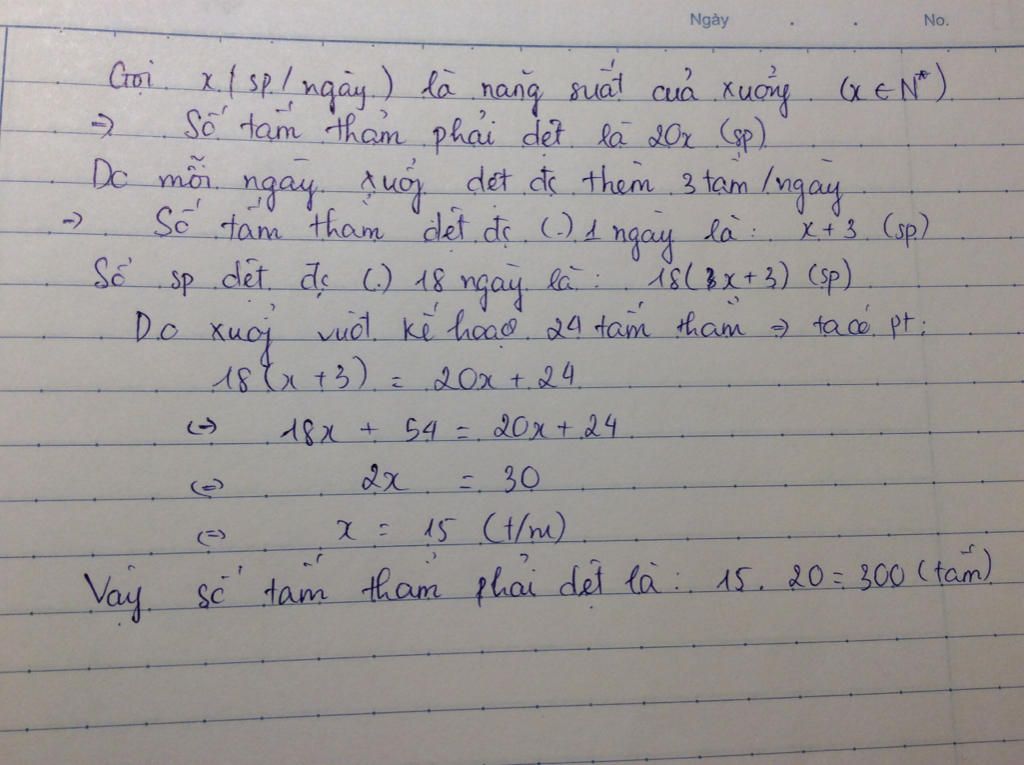 Ngày . . No.
Gọi x (sp/ngày) là năng suất của xưởng (x ∈ N*)
=> Số tấm thảm phải dệt là 20x (sp)
Do mỗi ngày xưởg dệt đc thêm 3 tấm/ngày
=> Số tấm thảm dệt đc (.) 1 ngày là: x + 3 (sp)
Số sp dệt đc (.) 18 ngày là: 18(x + 3) (sp)
Do xưởg vượt kế hoạch 24 tấm thảm => ta có pt:
18(x + 3) = 20x + 24
<=> 18x + 54 = 20x + 24
<=> 2x = 30
<=> x = 15 (t/m)
Vậy số tấm thảm phải dệt là: 15 . 20 = 300 (tấm)